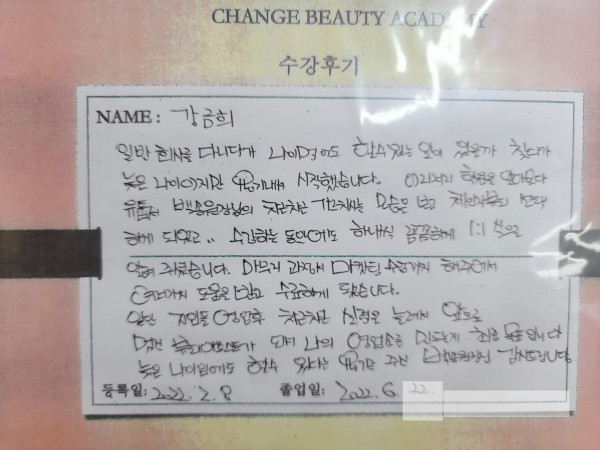 CHANGE BEAUTY ACADEMY
수강후기
NAME : 강금희
일반 회사를 다니다가 나이먹어도 할수있는 일이 있을까 찾다가
늦은 나이이지만 용기내서 시작했습니다. 이리저리 학원을 알아보다
유튜브 원장님의 차근차근 가르치시는 모습을 보고 선택
하게 되었고.. 수강하는 동안에도 하나씩 꼼꼼하게 1:1 식으로
알려 주셨습니다. 마무리 과정서 마케팅 수업까지 해주셔서
여러가지 도움을 받고 수료하게 됐습니다.
일단 지인들 영업후 차근차근 실력을 늘려서 앞으로
멋진 되어 나의 영업소를 만드는게 최종 목표입니다
늦은 나이임에도 할수 있다는 용기를 주신 감사드립니다
등록일: 2022. 2. 8 졸업일: 2022. 6. 22.